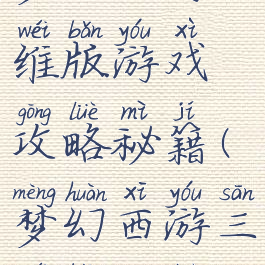 wéi bǎn yóu xì
维版游戏
gōng lüè mì jí
攻略秘籍(
mèng huàn xī yóu sān
梦幻西游三